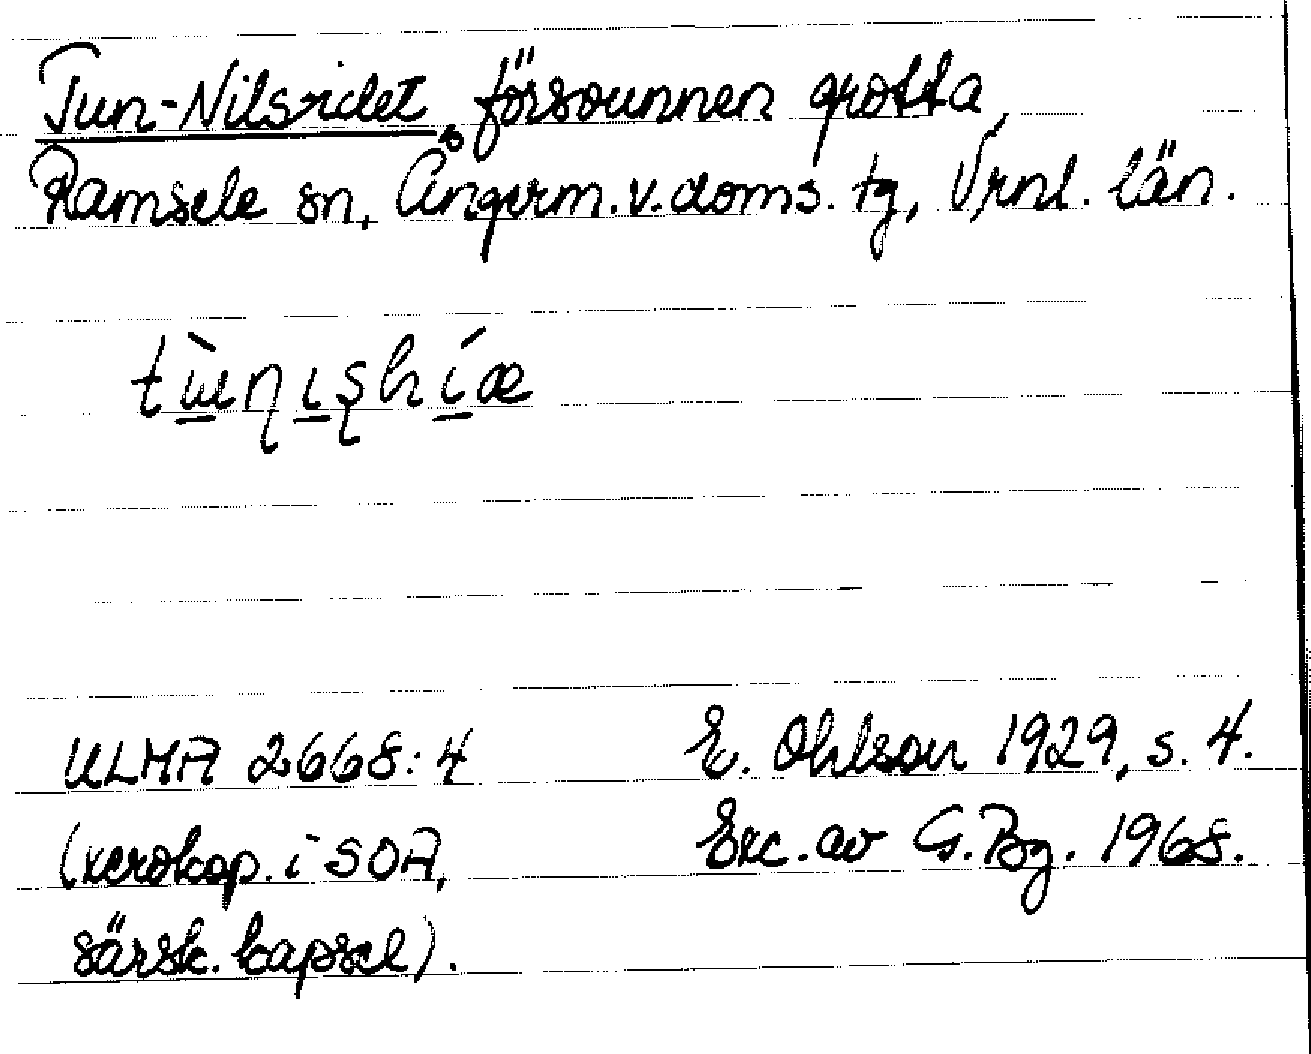 Tun-Nilsridet, försvunnen grotta,
Ramsele sn, Ångerm.v.doms. tg, Vrnl. län.
ULMA 2668:4
E. Ohlson 1929, s. 4.
(xerokop. i SOA,
Exc. av G.Bg. 1968.
särsk. kapsel).